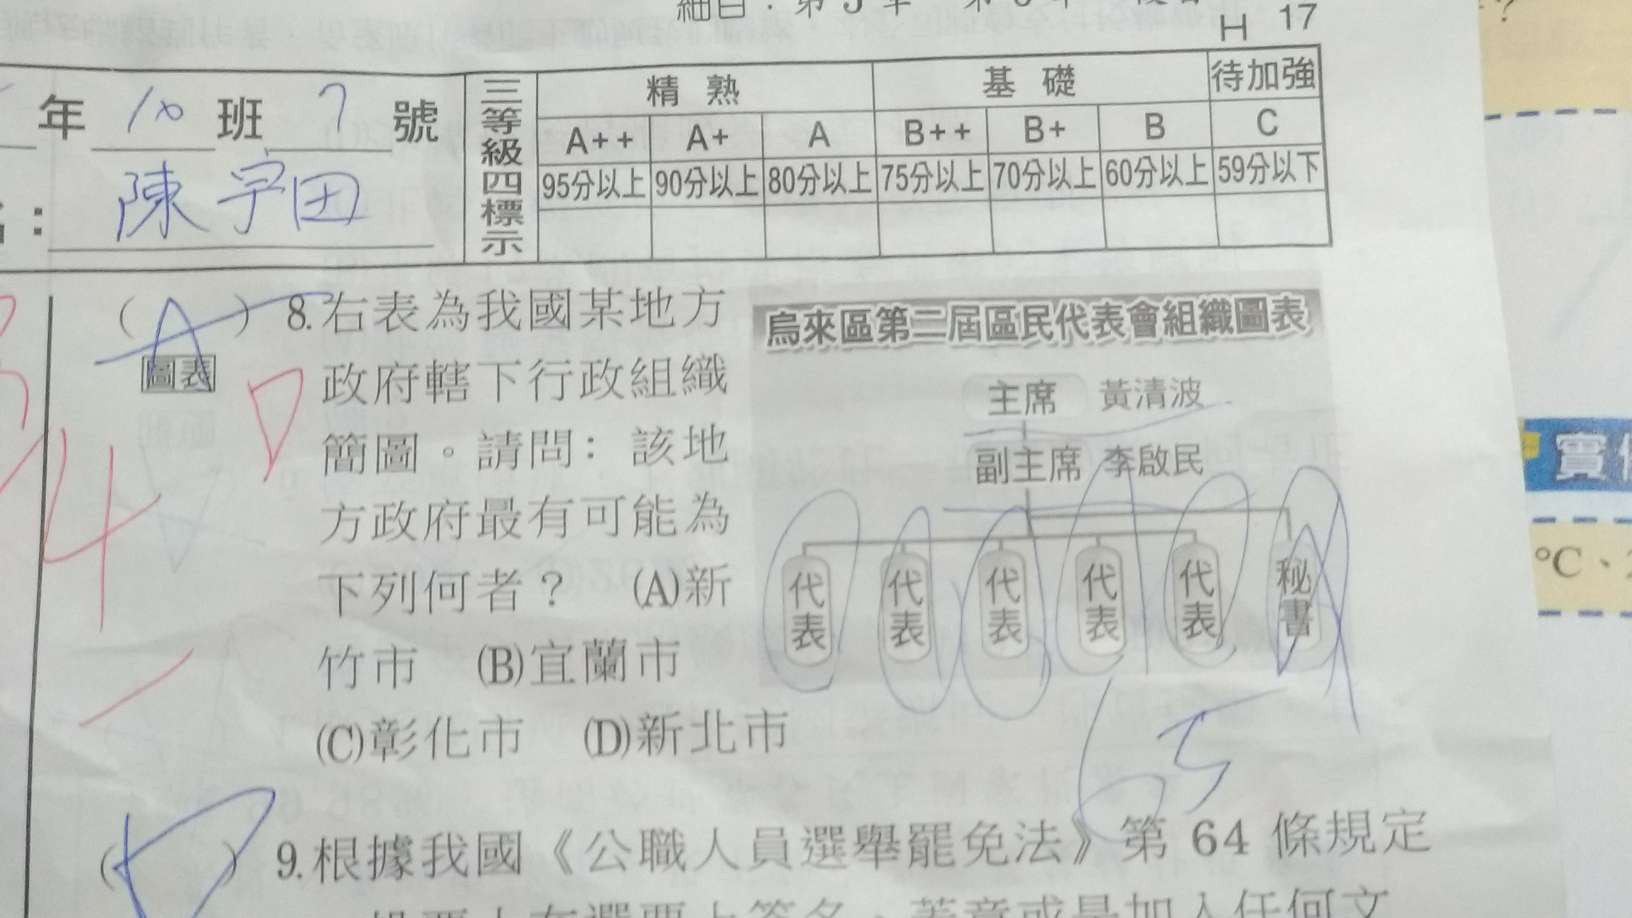 H 17
年 10 班 7 號
陳宇田
三等級四標示
精熟 基礎 待加強
A++ A+ A B++ B+ B C
95分以上 90分以上 80分以上 75分以上 70分以上 60分以上 59分以下
(A) 8.右表為我國某地方
圖表 政府轄下行政組織
簡圖。請問：該地
方政府最有可能為
下列何者？ (A)新
竹市 (B)宜蘭市
(C)彰化市 (D)新北市
烏來區第二屆區民代表會組織圖表
主席 黃清波
副主席 李啟民
代表 代表 代表 代表 代表 秘書
65
( ) 9.根據我國《公職人員選舉罷免法》第 64 條規定
°C、